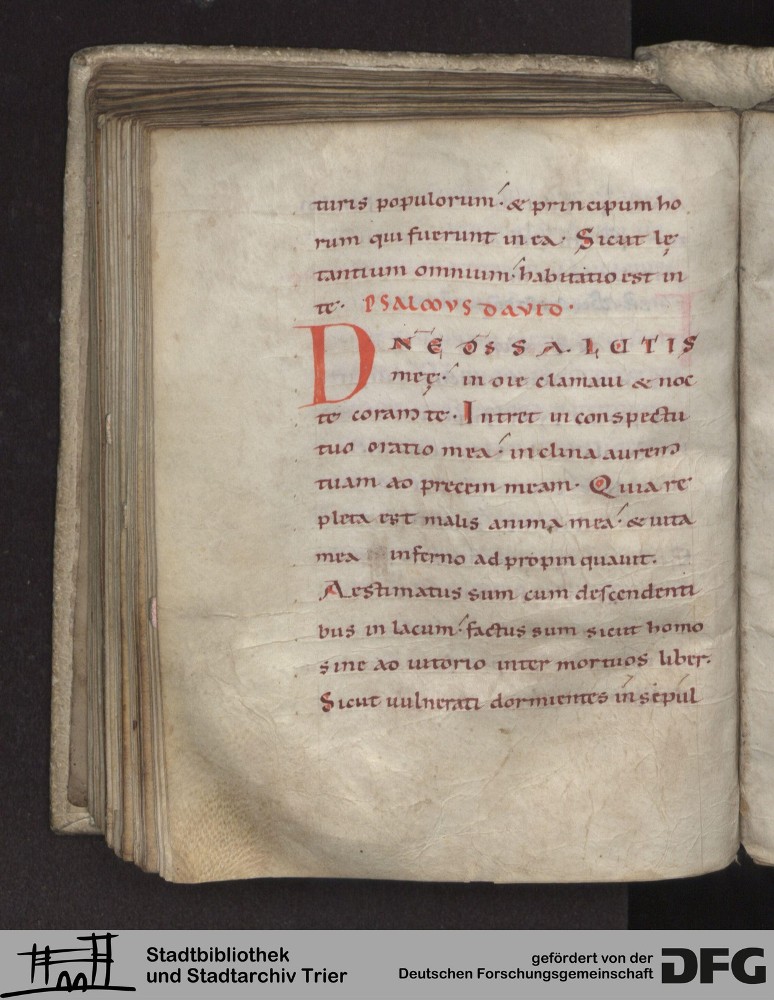 turis populorum· & principum ho
rum qui fuerunt in ea· Sicut lę
tantium omnium· habitatio est in
te· PSALMVS DAVID·
DNE DS SALUTIS
meę· in die clamaui & noc
te coram te· Intret in conspectu
tuo oratio mea· inclina aurem
tuam ad precem meam· Quia re
pleta est malis anima mea· & uita
mea inferno adpropinquauit·
Aestimatus sum cum descendenti
bus in lacum· factus sum sicut homo
sine adiutorio inter mortuos liber·
Sicut uulnerati dormientes in sepul
Stadtbibliothek
und Stadtarchiv Trier
gefördert von der
Deutschen Forschungsgemeinschaft DFG